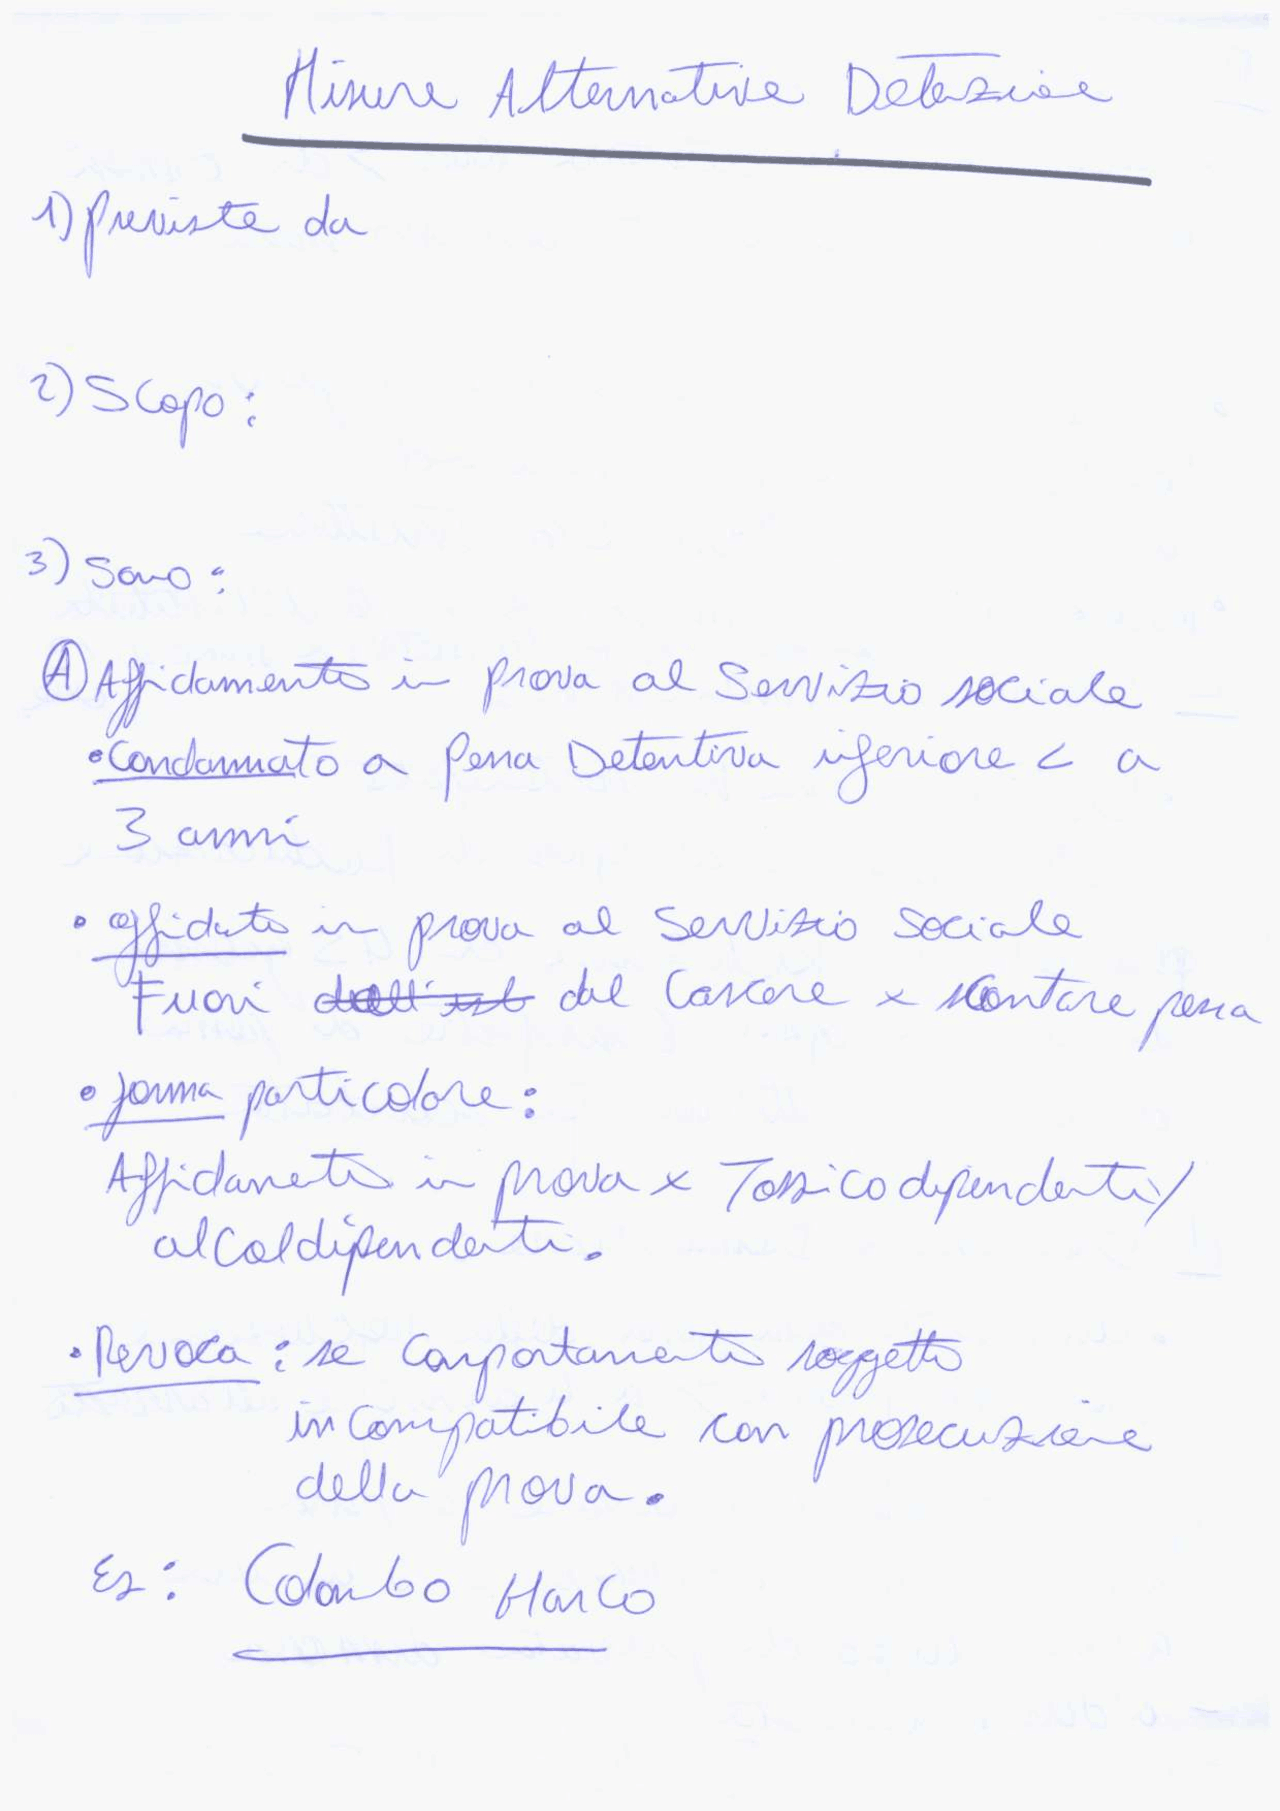 Misure Alternative Detenzione
1) previste da
2) Scopo:
3) Sono:
A Affidamento in prova al Servizio sociale
• Condannato a pena Detentiva inferiore < a
3 anni
• affidato in prova al Servizio Sociale
Fuori dall'ist dal Carcere x scontare pena
• forma particolare:
Affidamento in prova x Tossicodipendenti/
alcoldipendenti.
• Revoca: se comportamento soggetto
incompatibile con prosecuzione
della prova.
Es: Colombo Marco